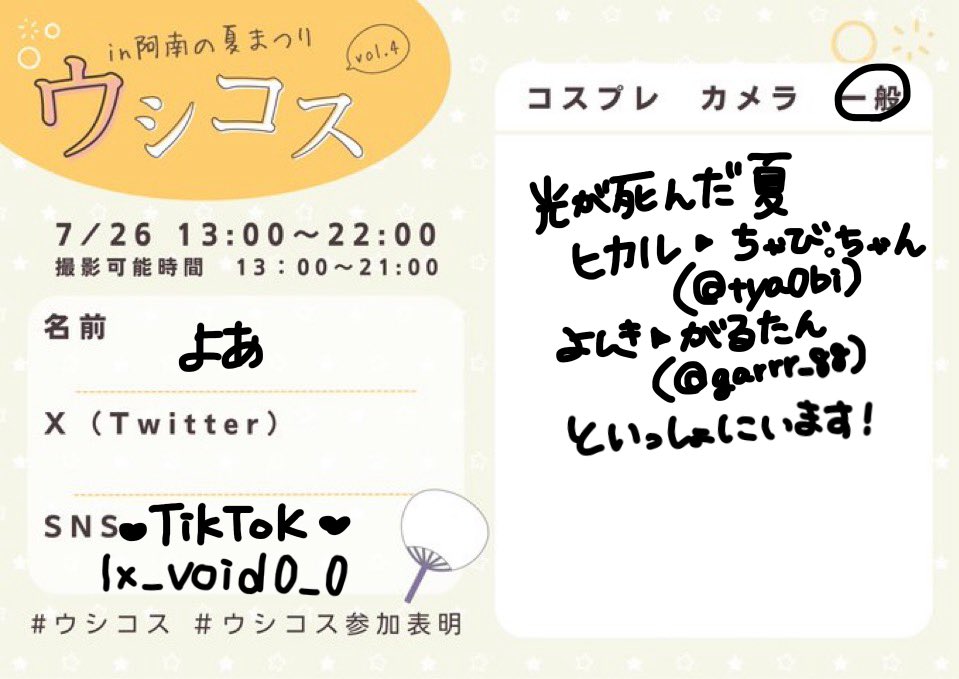 in阿南の夏まつり
vol.4
ウシコス
7/26 13:00～22:00
撮影可能時間 13：00～21:00
名前
よあ
X（Twitter）
SNS♥TikTok♥
lx_void0_0
#ウシコス #ウシコス参加表明
コスプレ カメラ 一般
光が死んだ夏
ヒカル▶ちゃび。ちゃん
(@tya0bi)
よしき▶がるたん
(@garrr_gg)
といっしょにいます！